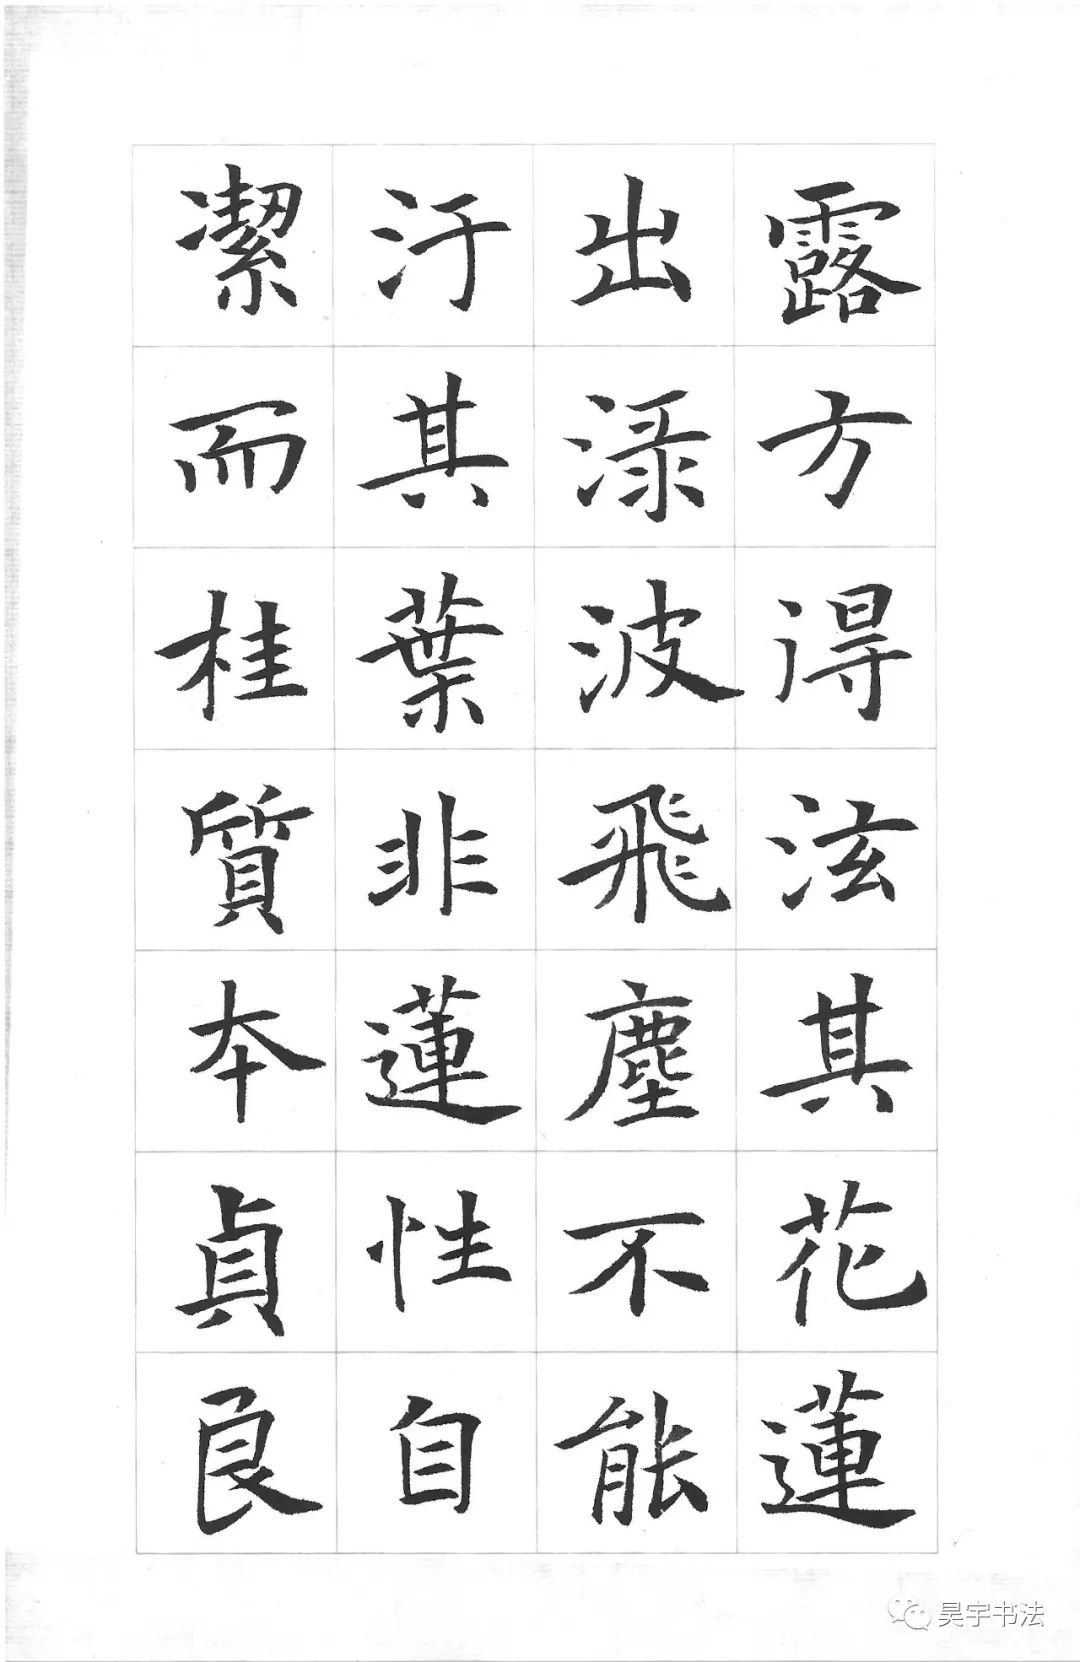 露方得泫其花蓮
出渌波飛塵不能
汙其葉非蓮性自
潔而桂質本貞良
昊宇书法